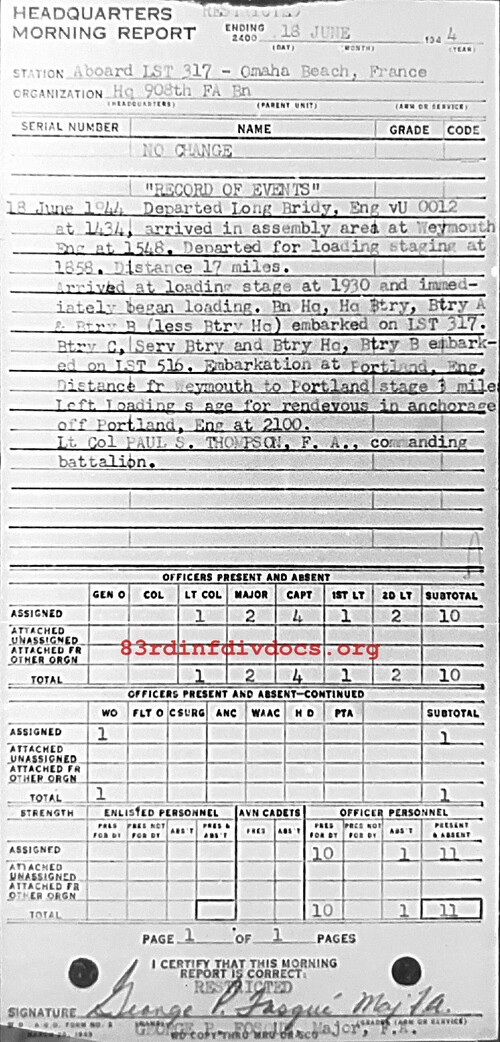 RESTRICTED
HEADQUARTERS
MORNING REPORT
ENDING 2400 18 JUNE 1944
(DAY) (MONTH) (YEAR)
STATION Aboard LST 317 - Omaha Beach, France
ORGANIZATION Hq 908th FA Bn
(HEADQUARTERS) (PARENT UNIT) (ARM OR SERVICE)
SERIAL NUMBER NAME GRADE CODE
NO CHANGE
"RECORD OF EVENTS"
18 June 1944 Departed Long Bridy, Eng vU 0012
at 1434, arrived in assembly area at Weymouth
Eng at 1548. Departed for loading staging at
1858. Distance 17 miles.
Arrived at loading stage at 1930 and immed-
iately began loading. Bn Hq, Hq Btry, Btry A
& Btry B (less Btry Hq) embarked on LST 317.
Btry C, Serv Btry and Btry Hq, Btry B embark-
ed on LST 516. Embarkation at Portland, Eng.
Distance fr Weymouth to Portland stage mile
Left Loading s age for rendevous in anchorage
off Portland, Eng at 2100.
Lt Col PAUL S. THOMPSON, F. A., commanding
battalion.
OFFICERS PRESENT AND ABSENT
GEN O COL LT COL MAJOR CAPT 1ST LT 2D LT SUBTOTAL
ASSIGNED 1 2 4 1 2 10
ATTACHED UNASSIGNED
ATTACHED FR OTHER ORGN
83rdinfdivdocs.org
TOTAL 1 2 4 1 2 10
OFFICERS PRESENT AND ABSENT—CONTINUED
WO FLT O CSURG ANC WAAC H D PTA SUBTOTAL
ASSIGNED 1 1
ATTACHED UNASSIGNED
ATTACHED FR OTHER ORGN
TOTAL 1 1
STRENGTH ENLISTED PERSONNEL AVN CADETS OFFICER PERSONNEL
PRES FOR DY PRES NOT FOR DY ABS'T PRES & ABS'T PRES ABS'T PRES FOR DY PRES NOT FOR DY ABS'T PRESENT & ABSENT
ASSIGNED 10 1 11
ATTACHED UNASSIGNED
ATTACHED FR OTHER ORGN
TOTAL 10 1 11
PAGE 1 OF 1 PAGES
I CERTIFY THAT THIS MORNING
REPORT IS CORRECT
RESTRICTED
SIGNATURE George P. Fosque Maj FA.
W D A G O FORM NO. (NAME) (GRADE) (ARM OR SERVICE)
GEORGE P. FOSQUE, Major, F.A.